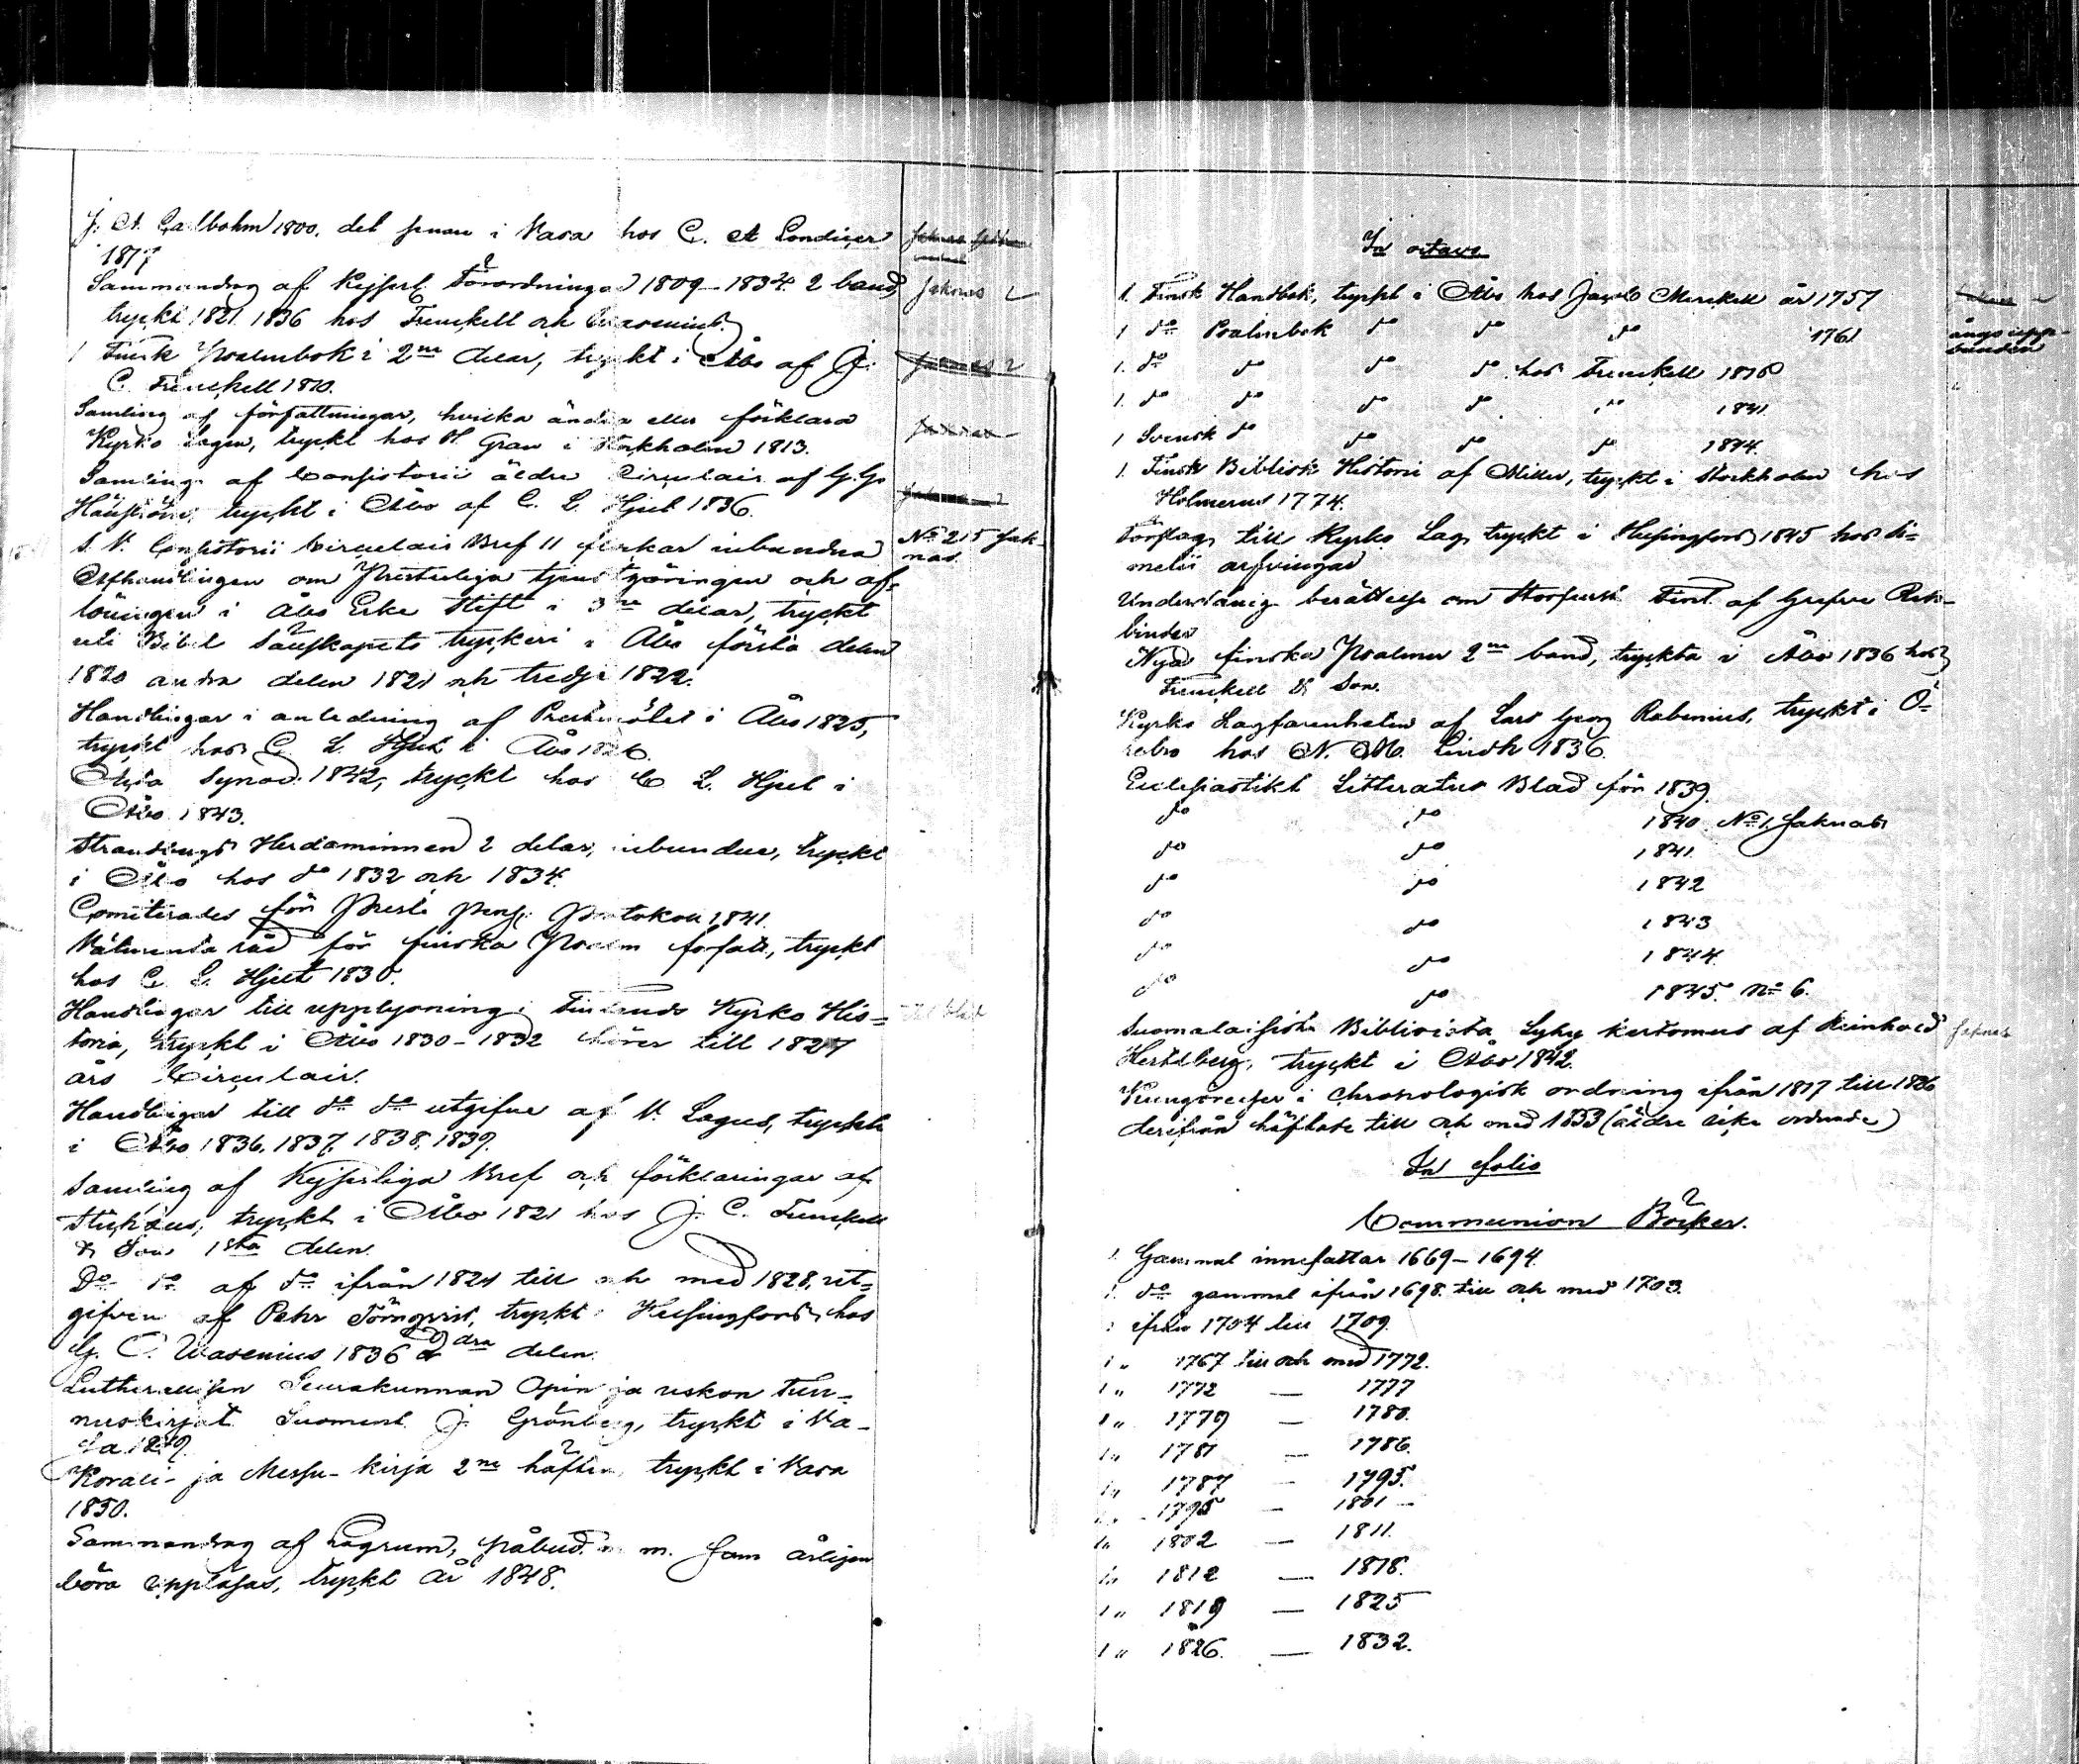 J. A. Carlbohm 1800. det senare i Vasa hos C. A. Londicer
1817
Sammandrag af Kejserl. Förordningar 1809–1834. 2 band,
tryckt 1821. 1836 hos Frenckell och Wasenius.
saknas 2
1 Finsk Psalmbok i 2ne delar, tryckt i Åbo af J.
C. Frenckell 1810.
saknas 2
Samling af författningar, hvilka ändra eller förklara
Kyrko Lagen, tryckt hos H. Gran i Stockholm 1813.
saknas
Samling af Consistorii äldre Circulair af G. G.
tryckt i Åbo af C. L. Hjelt 1836.
saknas 2
Consistorii Circulair Bref 11 inbundna
No 215 sak-
nas.
Afhandlingen om Presterliga tjenstgöringen och af-
löningen i Åbo Erke Stift i 3ne delar, tryckt
uti Bibel Sällskapets tryckeri i Åbo första delen
1820 andra delen 1821 och tredje 1822.
Handlingar i anledning af Prestmötet i Åbo 1825,
tryckt hos C. L. Hjelt i Åbo 1826.
Synod. 1842, tryckt hos C. L. Hjelt i
Åbo 1843.
Strandbergs Herdaminnen 2 delar, inbundne, tryckt
i Åbo hos do 1832 och 1834.
Comiterades för Prest. Protokoll 1841.
Välmenta råd för finska Psalm författ., tryckt
hos C. L. Hjelt 1830.
Handlingar till upplysning i Finlands Kyrko His-
toria, tryckt i Åbo 1830–1832 hörer till 1827
års Circulair.
Handlingar till do do utgifne af V. Lagus, tryckte
i Åbo 1836, 1837, 1838, 1839.
Samling af Kejserliga Bref och förklaringar af
Stichæus, tryckt i Åbo 1821 hos J. C. Frenckell
& Son 1sta delen.
Do do af do ifrån 1821 till och med 1828, ut-
gifven af Pehr Törnqvist, tryckt i Helsingfors hos
G. O. Wasenius 1836 2dra delen.
Lutherallisen Seurakunnan Opin ja uskon tun-
nuskirjat Suoment. J. Grönberg, tryckt i Va-
sa 1849.
Korali- ja Messu-kirja 2ne häften, tryckt i Vasa
1850.
Sammandrag af Lagrum, påbud m. m. som årligen
böra uppläsas, tryckt år 1848.
In octavo
1. Finsk Handbok, tryckt i Åbo hos Jacob Merckell år 1757
1 do Psalmbok do do do 1761
ånyo upp-
bunden
1. do do do do hos Frenckell 1816
1. do do do do do 1841
1 Svensk do do do do 1844.
1. Finsk Biblisk Historia af Miller, tryckt i Stockholm hos
Holmerus 1774.
Förslag till Kyrko Lag tryckt i Helsingfors 1845 hos Si-
melii arfvingar
Underdånig berättelse om Storfurst. Finl. af Grefve Reh-
binder
Nya finska Psalmer 2ne band, tryckta i Åbo 1836 hos
Frenckell & Son.
Kyrko Lagfarenheten af Lars Georg Rabenius, tryckt i Ö-
rebro hos N. M. Lindh 1836.
Ecclesiastikt Litteratur Blad för 1839.
do do 1840. No 1. saknas
do do 1841
do do 1842
do do 1843
do do 1844
do do 1845. No 6.
Suomalaisista Biblioista Lyhy kertomus af Reinhold
Hertzberg, tryckt i Åbo 1842.
saknas
Kungörelser i chronologisk ordning ifrån 1817 till 1826
derifrån häftade till och med 1853 (äldre icke ordnade)
In folio
Communion Böcker.
1. Gammal innefattar 1669–1694.
1. do gammal ifrån 1698. till och med 1703.
1 ifrån 1704 till 1709.
1 „ 1767 till och med 1772.
1 „ 1772 — 1777
1 „ 1779 — 1780.
1 „ 1781 — 1786.
1 „ 1787 — 1795.
1 „ 1795 — 1801
1 „ 1802 — 1811.
1 „ 1812 — 1818.
1 „ 1819 — 1825
1 „ 1826. — 1832.